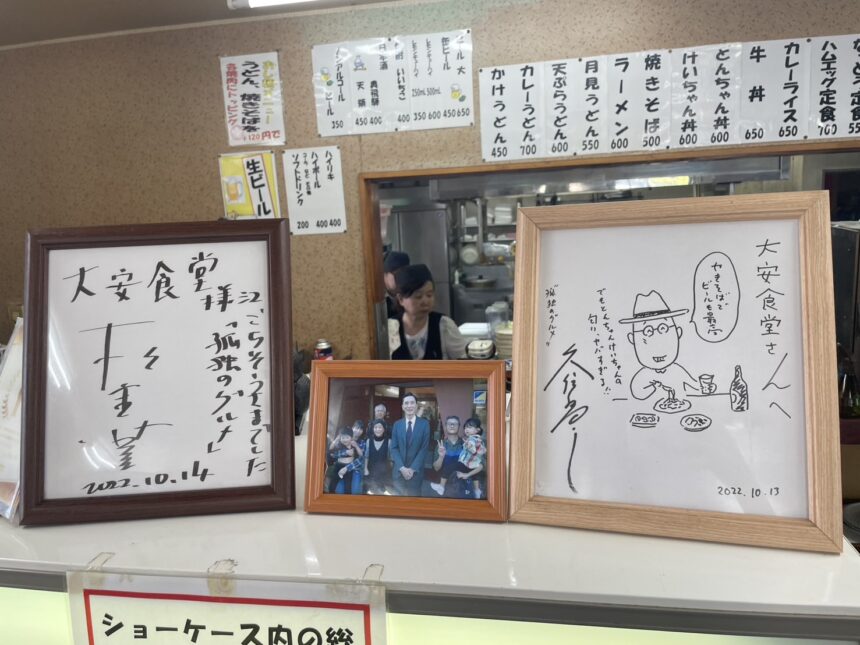 うどん、焼きそばを
各焼肉にトッピング
120円で
ビール 大 650
缶ビール 450
レモンチューハイ 500mL 600
レモンチューハイ 250mL 350
酎 いいちこ 400
奥飛騨 400
日本酒
天領 450
ノンアルコール
ビール 350
生ビール
ハイリキ 400
ハイボール 400
ソフトドリンク 200
ハムエッグ定食 700
カレーライス 650
牛丼 650
とんちゃん丼 600
けいちゃん丼 600
焼きそば 500
ラーメン 600
月見うどん 550
天ぷらうどん 600
カレーうどん 700
かけうどん 450
大安食堂様江
ごちそうさまでした
「孤独のグルメ」
2022.10.14
大安食堂さんへ
やきそばで
ビールも最高
でもとんちゃんけいちゃんの
匂い、ヤバすぎる!!
"孤独のグルメ"
久住昌之
2022.10.13
ショーケース内の総